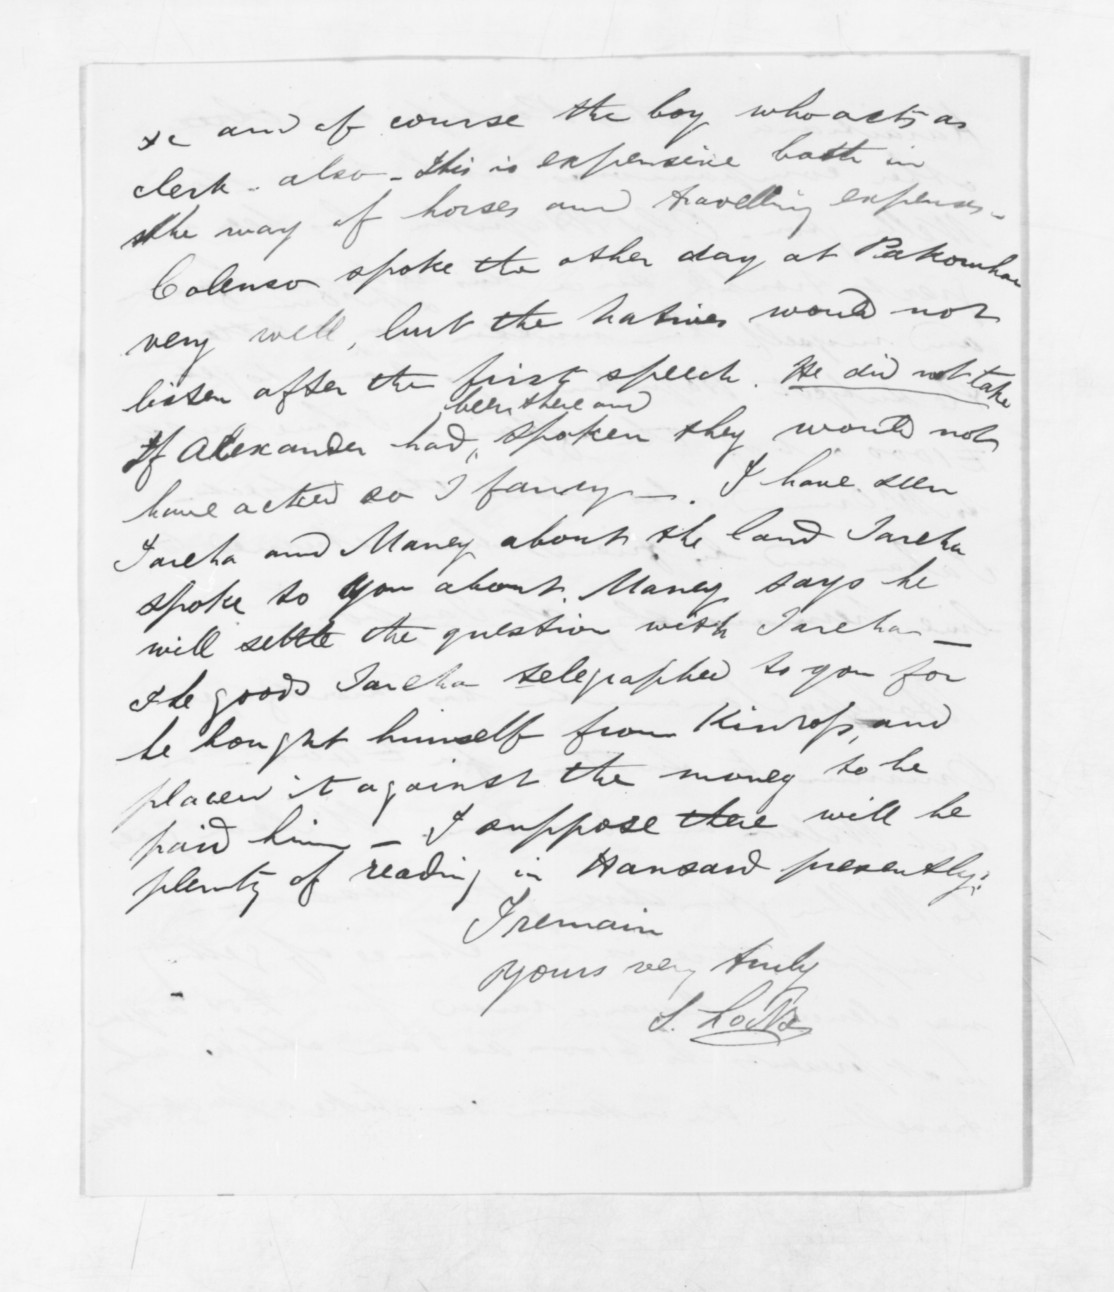 &c and of course the boy who acts as
clerk - also - this is expensive both in
the way of horses and travelling expenses -
Colenso spoke the other day at Pakowhai
very well, but the Natives would not
listen after the first speech. He did not take
If Alexander had, been there and spoken they would not
have acted so I fancy - . I have seen
Tareha and Maney about the land Tareha
spoke to you about. Maney says he
will settle the question with Tareha -
the goods Tareha telegraphed to you for
he bought himself from Kinross, and
placed it against the money to be
paid him - I suppose there will be
plenty of reading in Hansard presently:
I remain
yours very truly
S. Locke